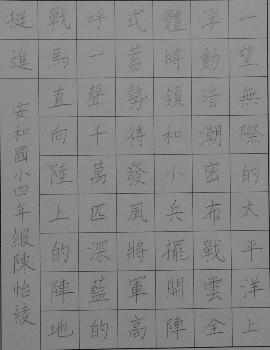 一望無際的太平洋上
浮動暗潮密布戰雲全
體將領和小兵擺開陣
式蓄勢待發風將軍高
呼一聲千萬匹深藍的
戰馬直向陸上的陣地
挺進
安和國小四年級陳怡綾